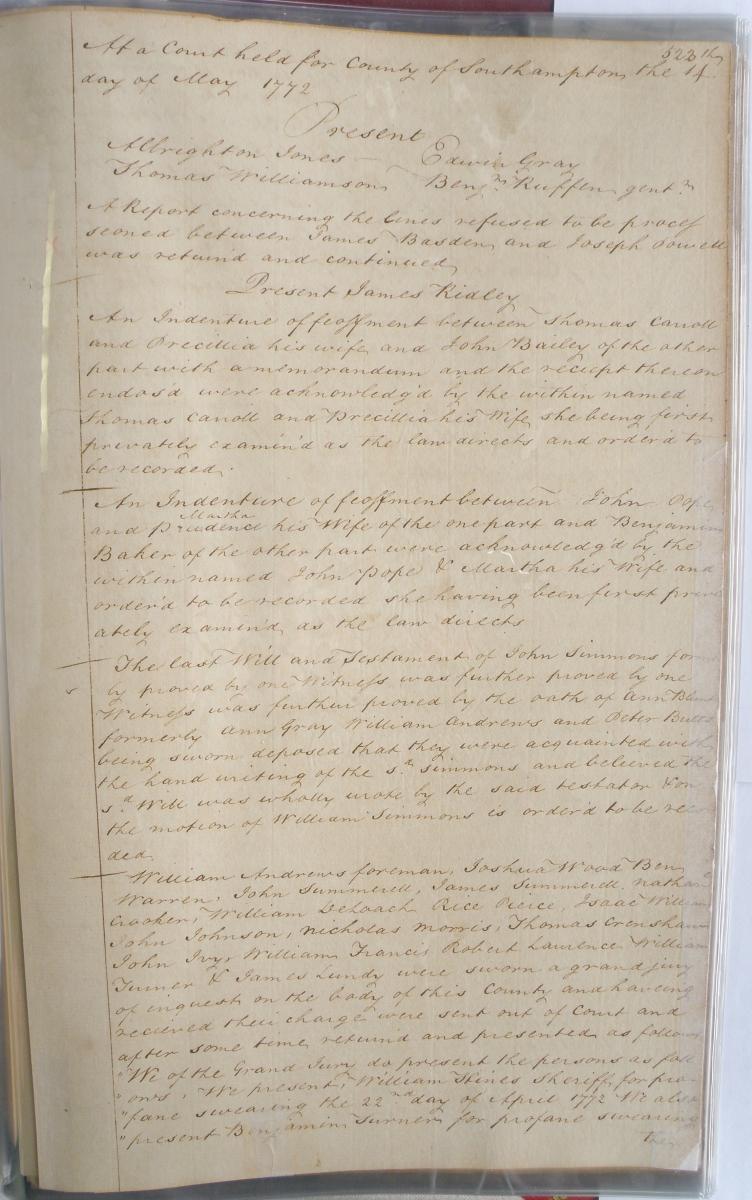 523
At a Court held for County of Southampton the 14th
day of May 1772
Present
Albrighton Jones Edwin Gray
Thomas Williamson Benjn Ruffin gentn
A Report concerning the lines refused to be proces
sioned between James Basden and Joseph Powell
was return'd and continued
Present James Ridley
An Indenture of feoffment between Thomas Caroll
and Precillia his wife and John Bailey of the other
part with a memorandum and the reciept thereon
endos'd were acknowledg'd by the within named
Thomas Caroll and Precillia his Wife she being first
privately examin'd as the law directs and order'd to
be recorded.
An Indenture of feoffment between John Pope
Martha
and Prudence his Wife of the one part and Benjamin
Baker of the other part were acknowledg'd by the
within named John Pope & Martha his Wife and
order'd to be recorded she having been first priv
ately examin'd as the law directs
The last Will and Testament of John Simmons for
ly proved by one Witness was further proved by one
Witness was further proved by the oath of Ann
formerly Ann Gray William Andrews and Peter
being sworn deposed that they were acquainted with
the hand writing of the sd Simmons and believed the
sd Will was wholly wrote by the said testator & on
the motion of William Simmons is order'd to be recor
ded
William Andrews foreman, Joshua Wood Ben
Warren, John Summerell, James Summerell, Nathan
Crooker, William DeLoach Rice Pierce, Isaac William
John Johnson, Nicholas Morris, Thomas Crenshaw
John Ivy, William Francis Robert Laurence William
Turner & James Lundy were sworn a grand jury
of inquest on the body of this County and haveing
recieved their charge were sent out of Court and
after some time return'd and presented as follows
"We of the Grand Jury do present the persons as foll
"ows, We present William Hines Sheriff for pro-
"fane swearing the 22nd day of April 1772 We also
"present Benjamin Turner for profane swearing